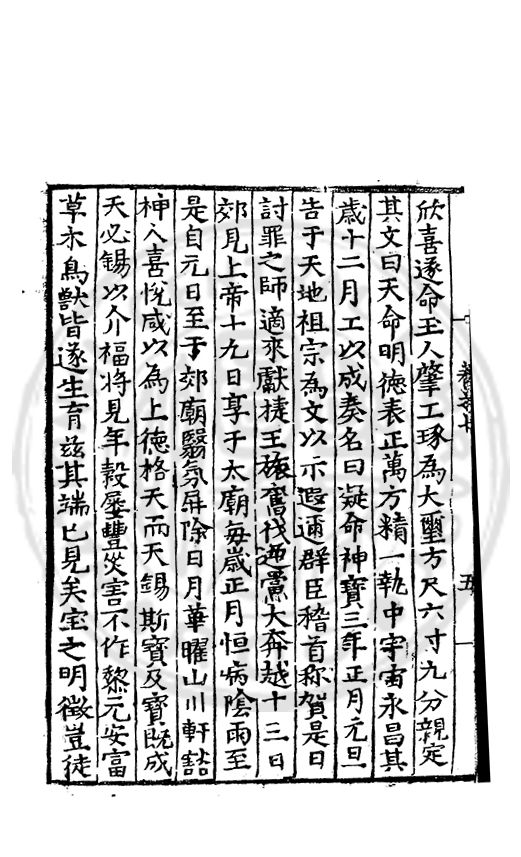 欣喜遂命玉人肇工琢為大璽方尺六寸九分親定
其文曰天命明德表正萬方精一執中宇宙永昌其
歳十二月工以成奏名曰凝命神寶三年正月元旦
告于天地祖宗為文以示遐邇群臣稽首称賀是日
討罪之師適來獻捷王旅奮伐逋黨大奔越十三日
郊見上帝十九日享于太廟每歳正月恒病陰雨至
是自元日至于郊廟翳氛屏除日月華曜山川軒豁
神人喜悅咸以為上德格天而天錫斯寶及寶既成
天必錫以介福將見年穀屡豐災害不作黎元安富
草木鳥獸皆遂生育兹其端已見矣宝之明徵豈徒
五